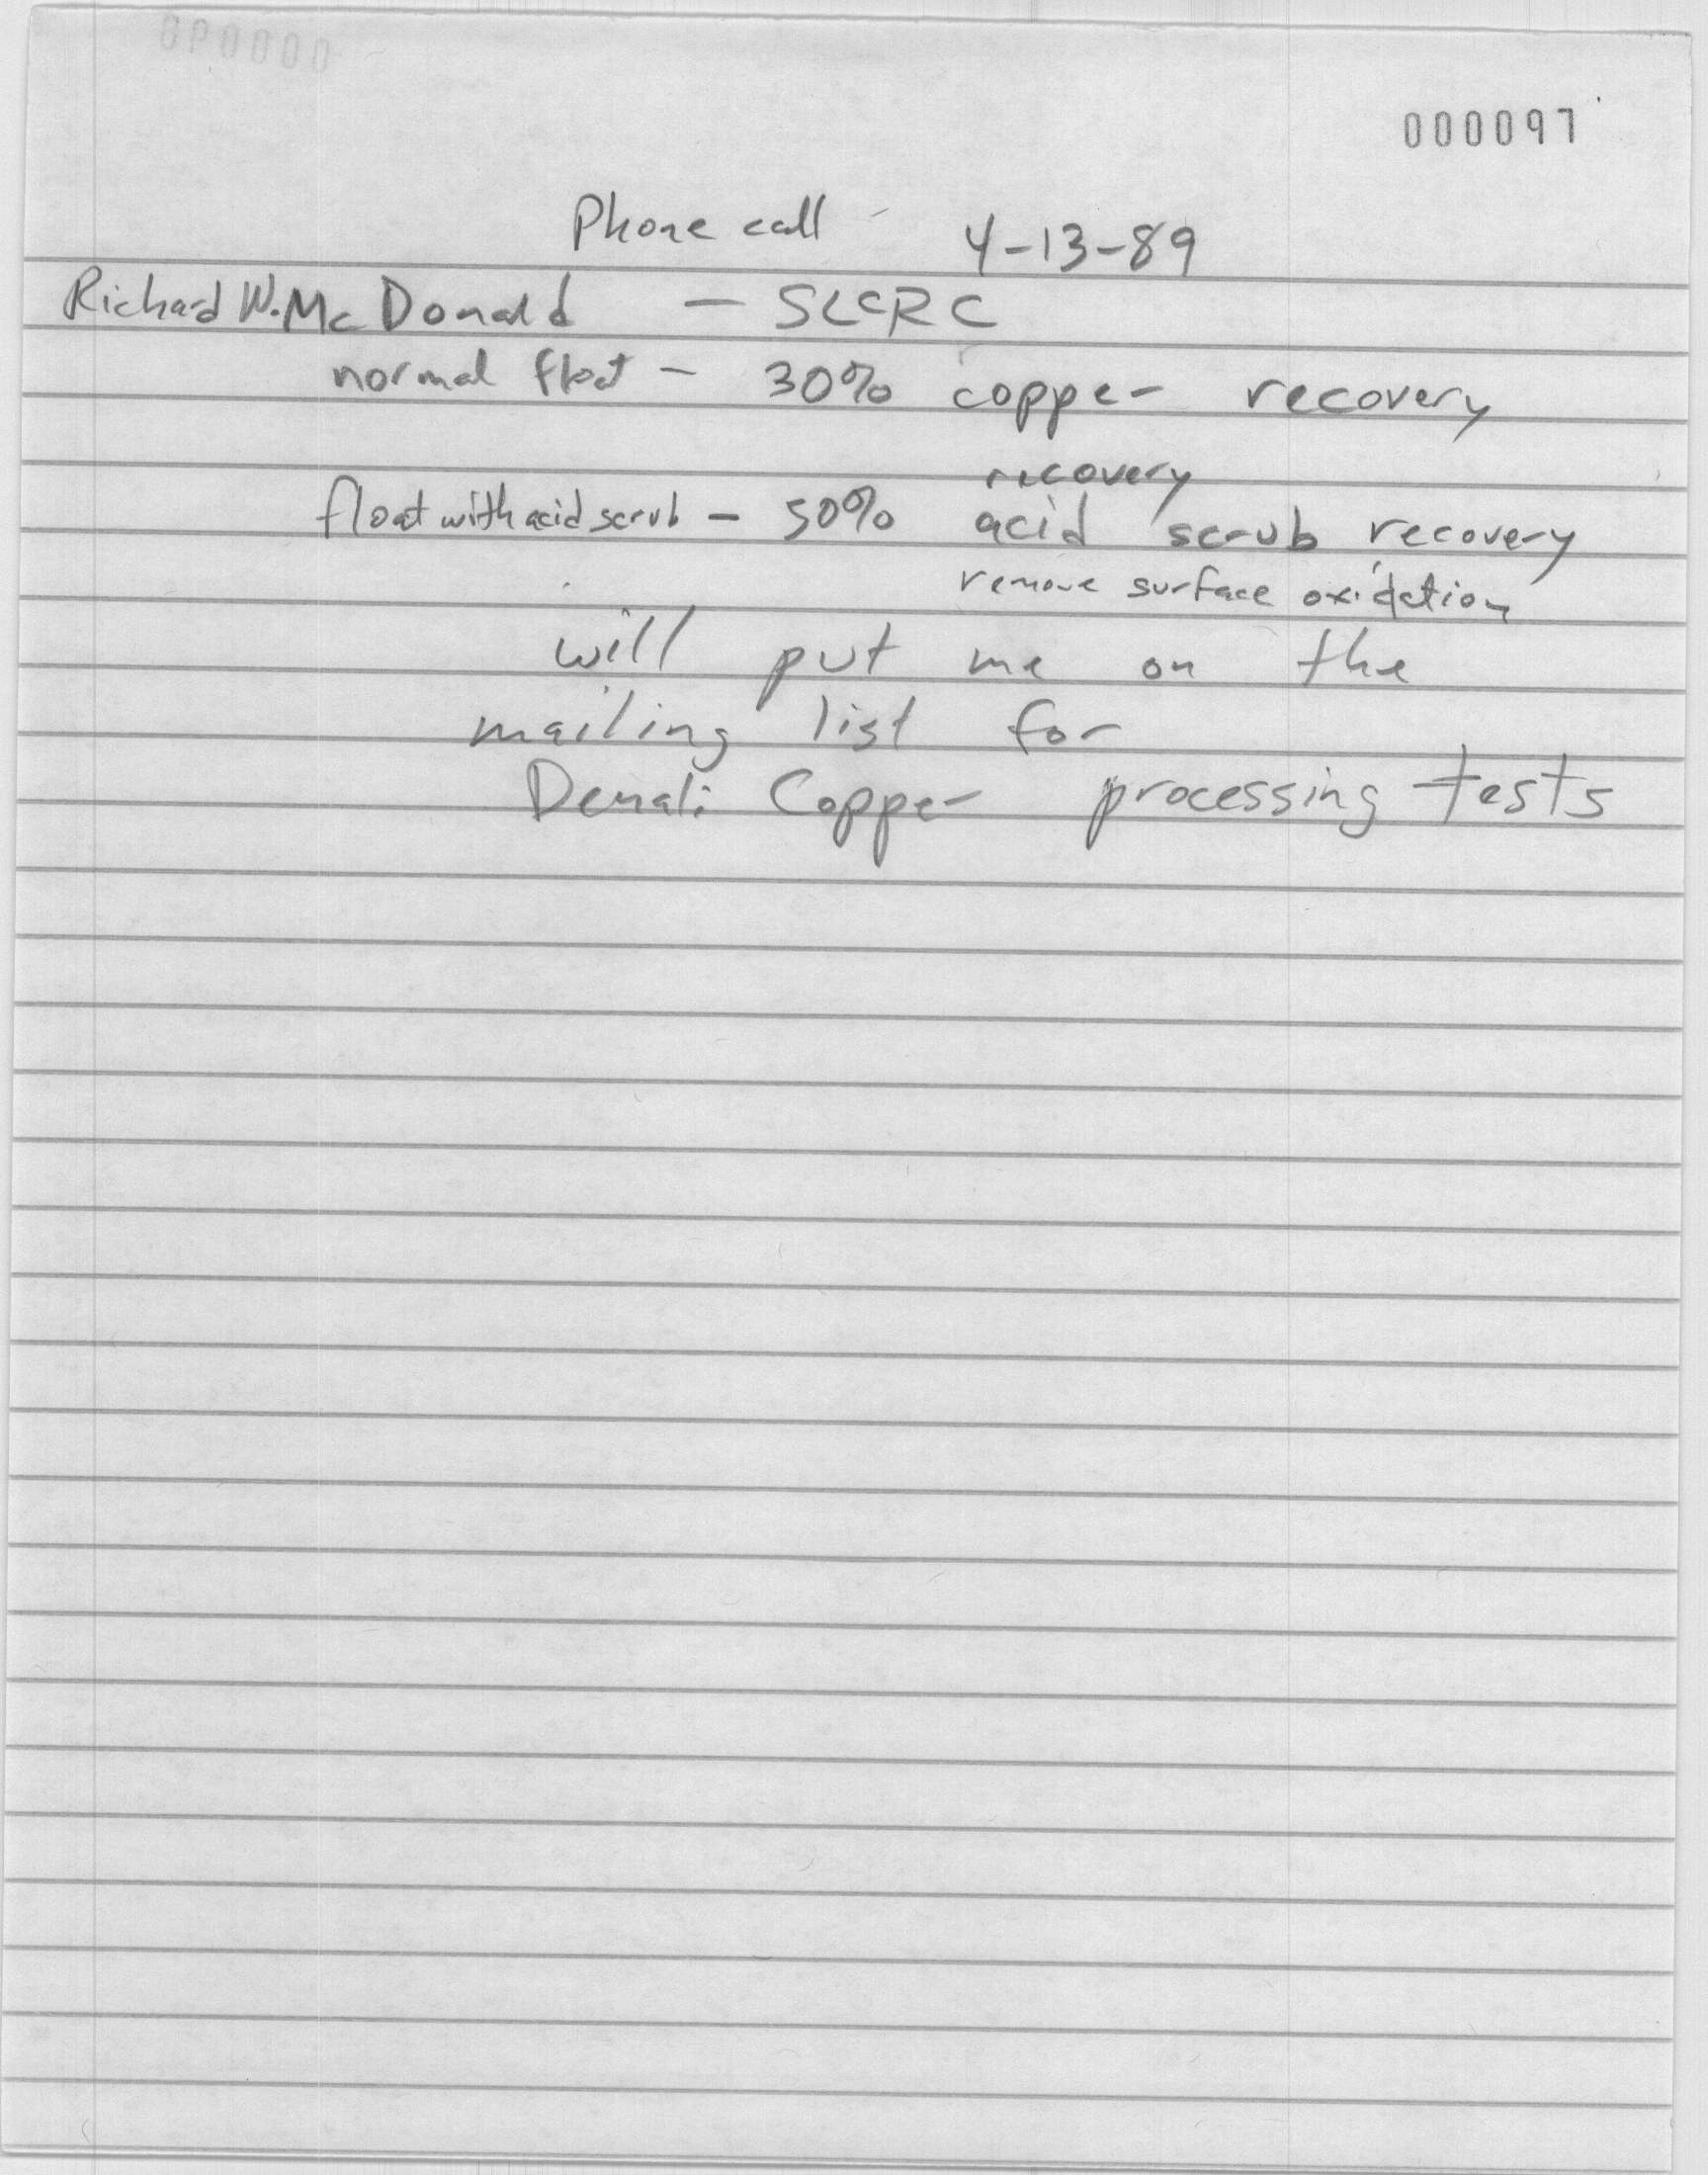 000097
Phone call - 4-13-89
Richard W. McDonald — SLCRC
normal float - 30% copper recovery
recovery
float with acid scrub - 50% acid scrub recovery
remove surface oxidation
will put me on the
mailing list for
Denali Copper processing tests